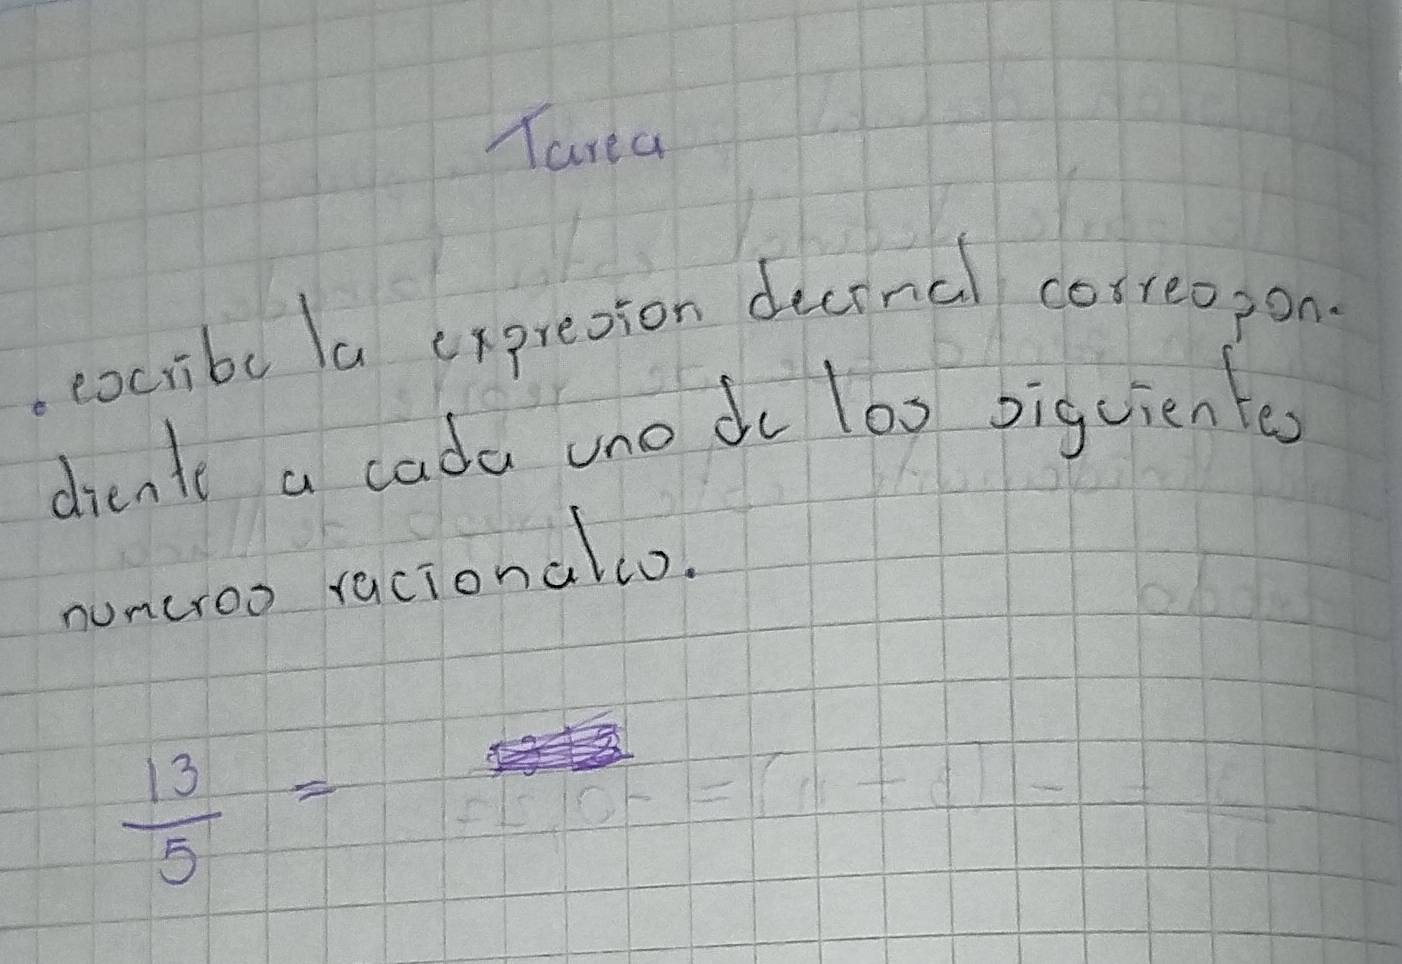 Tarea
. escribe la expresion decimal correspon-
diente a cada uno de los siguientes
numeros racionales.
13/5 =